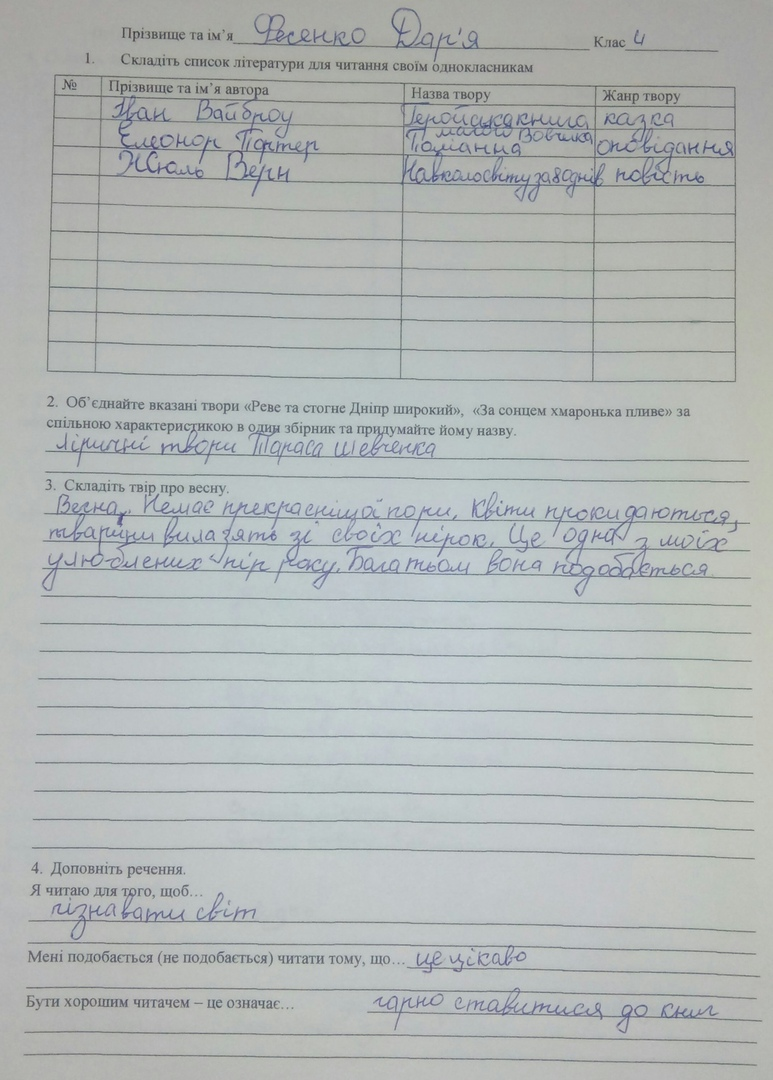 Прізвище та ім’я Фесенко Дар'я Клас 4
1. Складіть список літератури для читання своїм однокласникам
№ Прізвище та ім’я автора Назва твору Жанр твору
Іван Вайброу Геройська книга малого Вовчика казка
Елеонор Портер Поліанна оповідання
Жюль Верн Навколосвітуза80днів повість
2. Об’єднайте вказані твори «Реве та стогне Дніпр широкий», «За сонцем хмаронька пливе» за
спільною характеристикою в один збірник та придумайте йому назву.
Ліричні твори Тараса Шевченка
3. Складіть твір про весну.
Весна. Немає прекраснішої пори. Квіти прокидаються,
тварини вилазять зі своїх нірок. Це одна з моїх
улюблених пір року. Багатьом вона подобається.
4. Доповніть речення.
Я читаю для того, щоб…
пізнавати світ
Мені подобається (не подобається) читати тому, що… це цікаво
Бути хорошим читачем – це означає… гарно ставитися до книг